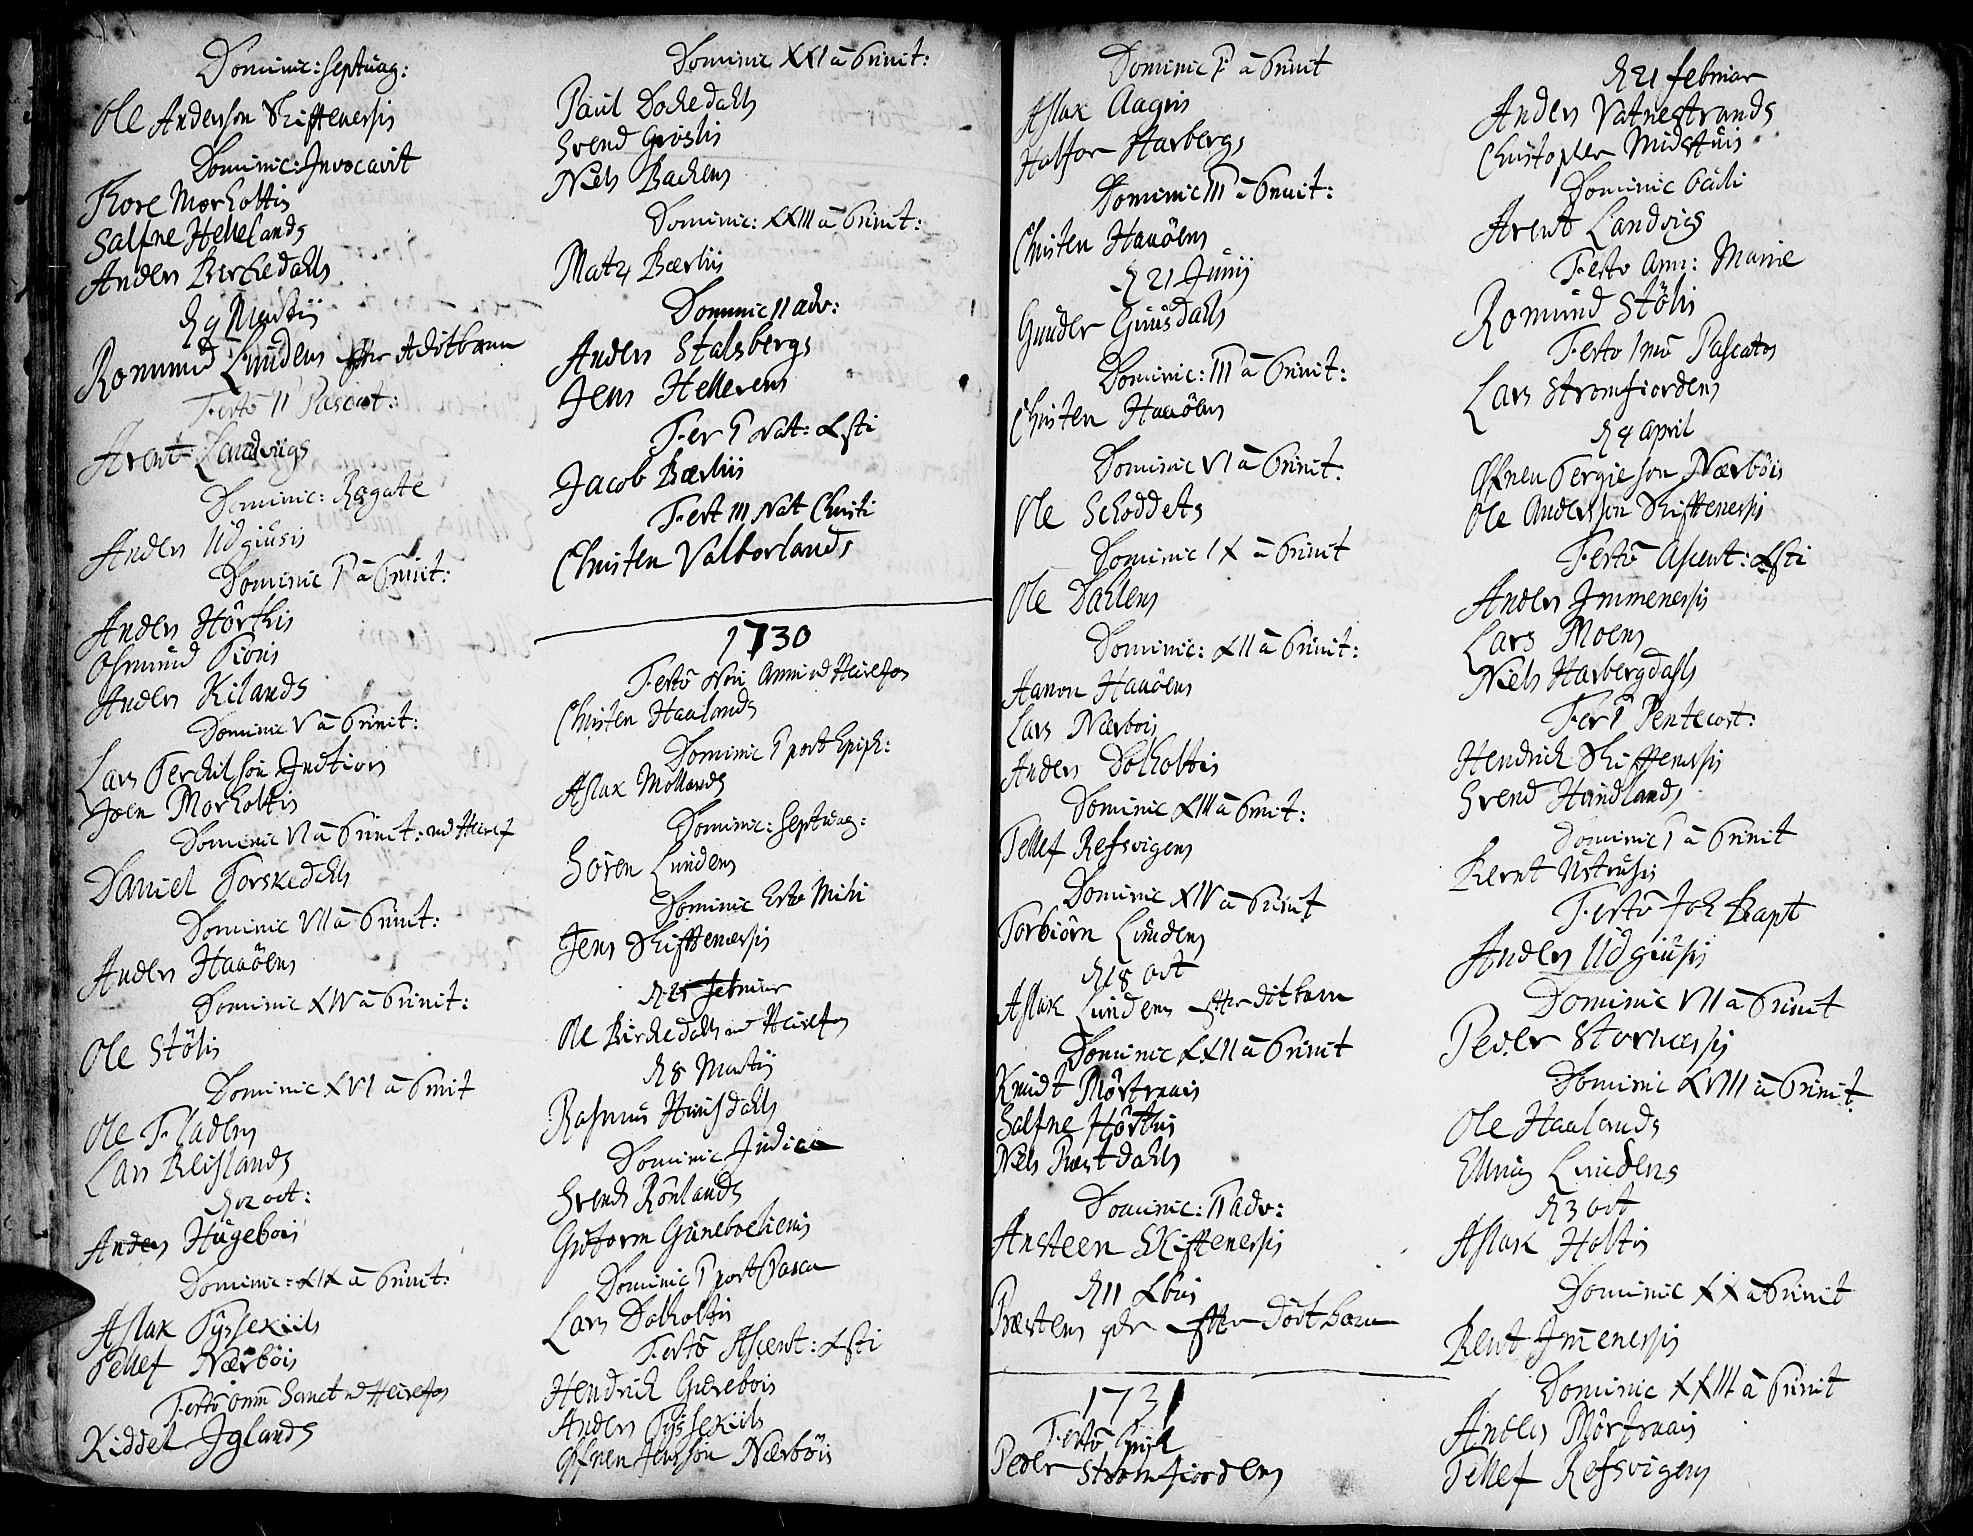 Dominic: Septuag:
Ole Anderson Skiftenessis
Dominic: Invocavit
Tore Morholtis
Salfne Hellelands
Anders Birkedahls
d 9 Martij
Romund Lundens efter A ditbarn
Festo II Pascat:
Arent Landvigs
Dominic: Rogate
Anders Udgiusis
Dominic T a Trinit:
Anders Hörthis
Osmund Tions
Anders Kilands
Dominic V a Trinit:
Lars Terchilson Indtiors
Joen Morholtis
Dominic VI a Trinit: ved Heiref
Daniel Torskedahls
Dominic VII a Trinit:
Anders Haaöens
Dominic XIV a Trinit:
Ole Stölis
Dominic XVI a Trinit
Ole Fladens
Lars Reislands
d 12 oct:
Anders Hugebois
Dominic: XIX a Trinit:
Aslak Tyssekiils
Tellef Nærböis
Festo omn Sanct ved Heirefos
Kiddel Iglands
Dominic XXI a Trinit:
Paul Dokedahls
Svend Gröslis
Niels Backens
Dominic: XXIII a Trinit:
Matz Bærliis
Dominic II adv:
Anders Stalsbergs
Jens Hellerens
Fer T Nat: Xsti
Jacob Bærliis
Fest III Nat Christi
Christen Valborlands
1730
Festo Nov Anni ved Heirefos
Christen Haalands
Dominic T post Epiph:
Aslak Mollands
Dominic: Septuag:
Sören Lundens
Dominic Esto Mihi
Jens Skiftenessis
d 25 februar
Ole Birkedahls ved Heirefos
d 8 Martij
Rasmus Huusdahls
Dominic Judica
Svend Rönlands
Gutorm Guneboehiens
Dominic T post Pasca
Lars Dolholtis
Festo Ascent: Xsti
Hendrich Gierebois
Anders Tyssekiils
Ofnen Jensson Nærböis
Dominic T a Trinit
Aslak Aagris
Halfor Harbergs
Dominic III a Trinit:
Christen Haaöens
d 21 Junij
Gunder Guusdahls
Dominic: III a Trinit:
Christen Haaöens
Dominic VI a Trinit:
Ole Schoddets
Dominic IX a Trinit
Ole Dahlens
Dominic: XII a Trinit:
Aanon Haaöens
Lars Nærbois
Anders Dolholtis
Dominic XIII a Trinit:
Tellef Refsvigens
Dominic XIV a Trinit
Torbiörn Lundens
d 18 oct
Aslak Lundens efter dit barn
Dominic XXII a Trinit
Knudt Mörfraais
Salfne Hörthis
Niels Præstdahls
Dominic: II adv:
Ansteen Skiftenessis
d 11 Xbris
Præstens efter dödt barn
1731
Festo Circ
Peder Strømfiordens
d 21 februar
Anders Vatnestrands
Christopher Midstuis
Dominic Oculi
Arent Landvigs
Festo Ann: Mariæ
Romund Stölis
Festo 1mo Pascatos
Lars Stromfiordens
d 4 april
Ofnen Tergieson Nærböis
Ole Andersson Skiftenessis
Festo Ascent: Xsti
Anders Immenessis
Lars Moens
Niels Harbergdahls
Fer T Pentecost:
Hendrich Skiftenessis
Svend Hundlands
Dominic T a Trinit
Bernt Ustrusis
Festo Joh Bapt
Anders Udgiusis
Dominic VII a Trinit
Peder Stornæssis
Dominic XVIII a Trinit
Ole Haalands
Elling Lundens
d 3 oct
Aslak Holtis
Dominic XX a Trinit
Bent Imenessis
Dominic XXIII a Trinit
Anders Mörfraais
Tellef Refsvigens